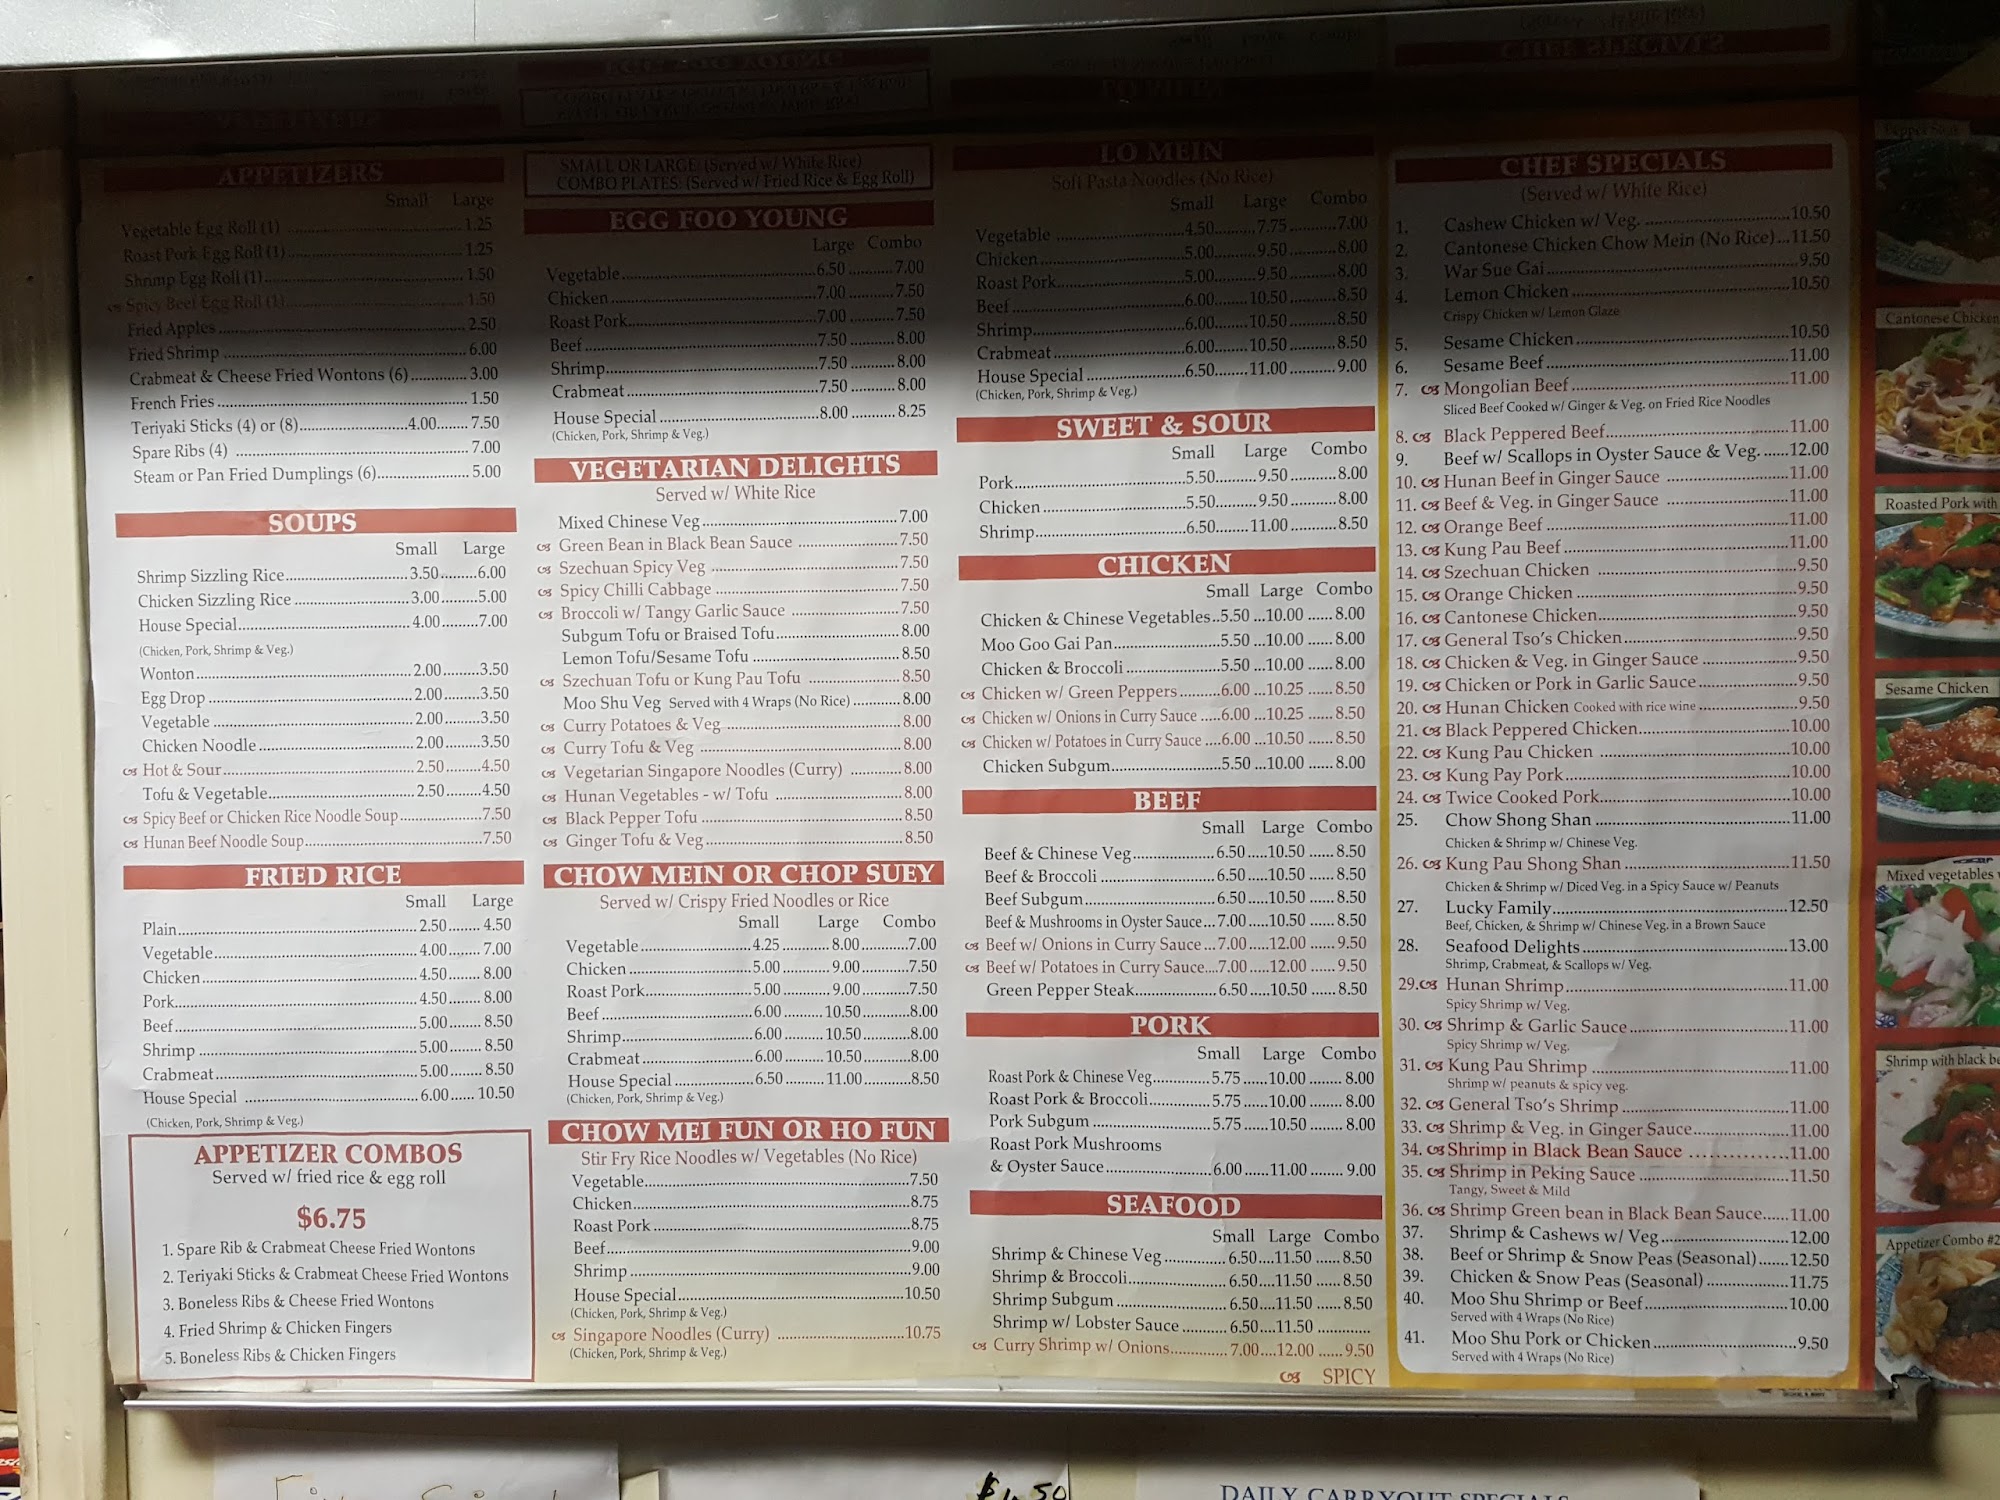 APPETIZERS
Small Large
Vegetable Egg Roll (1) 1.25
Roast Pork Egg Roll (1) 1.25
Shrimp Egg Roll (1) 1.50
Spicy Beef Egg Roll (1) 1.50
Fried Apples 2.50
Fried Shrimp 6.00
Crabmeat & Cheese Fried Wontons (6) 3.00
French Fries 1.50
Teriyaki Sticks (4) or (8) 4.00 7.50
Spare Ribs (4) 7.00
Steam or Pan Fried Dumplings (6) 5.00
SOUPS
Small Large
Shrimp Sizzling Rice 3.50 6.00
Chicken Sizzling Rice 3.00 5.00
House Special 4.00 7.00
(Chicken, Pork, Shrimp & Veg.)
Wonton 2.00 3.50
Egg Drop 2.00 3.50
Vegetable 2.00 3.50
Chicken Noodle 2.00 3.50
Hot & Sour 2.50 4.50
Tofu & Vegetable 2.50 4.50
Spicy Beef or Chicken Rice Noodle Soup 7.50
Hunan Beef Noodle Soup 7.50
FRIED RICE
Small Large
Plain 2.50 4.50
Vegetable 4.00 7.00
Chicken 4.50 8.00
Pork 4.50 8.00
Beef 5.00 8.50
Shrimp 5.00 8.50
Crabmeat 5.00 8.50
House Special 6.00 10.50
(Chicken, Pork, Shrimp & Veg.)
APPETIZER COMBOS
Served w/ fried rice & egg roll
$6.75
1. Spare Rib & Crabmeat Cheese Fried Wontons
2. Teriyaki Sticks & Crabmeat Cheese Fried Wontons
3. Boneless Ribs & Cheese Fried Wontons
4. Fried Shrimp & Chicken Fingers
5. Boneless Ribs & Chicken Fingers
SMALL OR LARGE: (Served w/ White Rice)
COMBO PLATES: (Served w/ Fried Rice & Egg Roll)
EGG FOO YOUNG
Large Combo
Vegetable 6.50 7.00
Chicken 7.00 7.50
Roast Pork 7.00 7.50
Beef 7.50 8.00
Shrimp 7.50 8.00
Crabmeat 7.50 8.00
House Special 8.00 8.25
(Chicken, Pork, Shrimp & Veg.)
VEGETARIAN DELIGHTS
Served w/ White Rice
Mixed Chinese Veg 7.00
Green Bean in Black Bean Sauce 7.50
Szechuan Spicy Veg 7.50
Spicy Chilli Cabbage 7.50
Broccoli w/ Tangy Garlic Sauce 7.50
Subgum Tofu or Braised Tofu 8.00
Lemon Tofu/Sesame Tofu 8.50
Szechuan Tofu or Kung Pau Tofu 8.50
Moo Shu Veg Served with 4 Wraps (No Rice) 8.00
Curry Potatoes & Veg 8.00
Curry Tofu & Veg 8.00
Vegetarian Singapore Noodles (Curry) 8.00
Hunan Vegetables - w/ Tofu 8.00
Black Pepper Tofu 8.50
Ginger Tofu & Veg 8.50
CHOW MEIN OR CHOP SUEY
Served w/ Crispy Fried Noodles or Rice
Small Large Combo
Vegetable 4.25 8.00 7.00
Chicken 5.00 9.00 7.50
Roast Pork 5.00 9.00 7.50
Beef 6.00 10.50 8.00
Shrimp 6.00 10.50 8.00
Crabmeat 6.00 10.50 8.00
House Special 6.50 11.00 8.50
(Chicken, Pork, Shrimp & Veg.)
CHOW MEI FUN OR HO FUN
Stir Fry Rice Noodles w/ Vegetables (No Rice)
Vegetable 7.50
Chicken 8.75
Roast Pork 8.75
Beef 9.00
Shrimp 9.00
House Special 10.50
(Chicken, Pork, Shrimp & Veg.)
Singapore Noodles (Curry) 10.75
(Chicken, Pork, Shrimp & Veg.)
LO MEIN
Soft Pasta Noodles (No Rice)
Small Large Combo
Vegetable 4.50 7.75 7.00
Chicken 5.00 9.50 8.00
Roast Pork 5.00 9.50 8.00
Beef 6.00 10.50 8.50
Shrimp 6.00 10.50 8.50
Crabmeat 6.00 10.50 8.50
House Special 6.50 11.00 9.00
(Chicken, Pork, Shrimp & Veg.)
SWEET & SOUR
Small Large Combo
Pork 5.50 9.50 8.00
Chicken 5.50 9.50 8.00
Shrimp 6.50 11.00 8.50
CHICKEN
Small Large Combo
Chicken & Chinese Vegetables 5.50 10.00 8.00
Moo Goo Gai Pan 5.50 10.00 8.00
Chicken & Broccoli 5.50 10.00 8.00
Chicken w/ Green Peppers 6.00 10.25 8.50
Chicken w/ Onions in Curry Sauce 6.00 10.25 8.50
Chicken w/ Potatoes in Curry Sauce 6.00 10.50 8.50
Chicken Subgum 5.50 10.00 8.00
BEEF
Small Large Combo
Beef & Chinese Veg 6.50 10.50 8.50
Beef & Broccoli 6.50 10.50 8.50
Beef Subgum 6.50 10.50 8.50
Beef & Mushrooms in Oyster Sauce 7.00 10.50 8.50
Beef w/ Onions in Curry Sauce 7.00 12.00 9.50
Beef w/ Potatoes in Curry Sauce 7.00 12.00 9.50
Green Pepper Steak 6.50 10.50 8.50
PORK
Small Large Combo
Roast Pork & Chinese Veg 5.75 10.00 8.00
Roast Pork & Broccoli 5.75 10.00 8.00
Pork Subgum 5.75 10.50 8.00
Roast Pork Mushrooms
& Oyster Sauce 6.00 11.00 9.00
SEAFOOD
Small Large Combo
Shrimp & Chinese Veg 6.50 11.50 8.50
Shrimp & Broccoli 6.50 11.50 8.50
Shrimp Subgum 6.50 11.50 8.50
Shrimp w/ Lobster Sauce 6.50 11.50
Curry Shrimp w/ Onions 7.00 12.00 9.50
SPICY
CHEF SPECIALS
(Served w/ White Rice)
1. Cashew Chicken w/ Veg. 10.50
2. Cantonese Chicken Chow Mein (No Rice) 11.50
3. War Sue Gai 9.50
4. Lemon Chicken 10.50
Crispy Chicken w/ Lemon Glaze
5. Sesame Chicken 10.50
6. Sesame Beef 11.00
7. Mongolian Beef 11.00
Sliced Beef Cooked w/ Ginger & Veg. on Fried Rice Noodles
8. Black Peppered Beef 11.00
9. Beef w/ Scallops in Oyster Sauce & Veg. 12.00
10. Hunan Beef in Ginger Sauce 11.00
11. Beef & Veg. in Ginger Sauce 11.00
12. Orange Beef 11.00
13. Kung Pau Beef 11.00
14. Szechuan Chicken 9.50
15. Orange Chicken 9.50
16. Cantonese Chicken 9.50
17. General Tso's Chicken 9.50
18. Chicken & Veg. in Ginger Sauce 9.50
19. Chicken or Pork in Garlic Sauce 9.50
20. Hunan Chicken Cooked with rice wine 9.50
21. Black Peppered Chicken 10.00
22. Kung Pau Chicken 10.00
23. Kung Pay Pork 10.00
24. Twice Cooked Pork 10.00
25. Chow Shong Shan 11.00
Chicken & Shrimp w/ Chinese Veg.
26. Kung Pau Shong Shan 11.50
Chicken & Shrimp w/ Diced Veg. in a Spicy Sauce w/ Peanuts
27. Lucky Family 12.50
Beef, Chicken, & Shrimp w/ Chinese Veg. in a Brown Sauce
28. Seafood Delights 13.00
Shrimp, Crabmeat, & Scallops w/ Veg.
29. Hunan Shrimp 11.00
Spicy Shrimp w/ Veg.
30. Shrimp & Garlic Sauce 11.00
Spicy Shrimp w/ Veg.
31. Kung Pau Shrimp 11.00
Shrimp w/ peanuts & spicy veg.
32. General Tso's Shrimp 11.00
33. Shrimp & Veg. in Ginger Sauce 11.00
34. Shrimp in Black Bean Sauce 11.00
35. Shrimp in Peking Sauce 11.50
Tangy, Sweet & Mild
36. Shrimp Green bean in Black Bean Sauce 11.00
37. Shrimp & Cashews w/ Veg 12.00
38. Beef or Shrimp & Snow Peas (Seasonal) 12.50
39. Chicken & Snow Peas (Seasonal) 11.75
40. Moo Shu Shrimp or Beef 10.00
Served with 4 Wraps (No Rice)
41. Moo Shu Pork or Chicken 9.50
Served with 4 Wraps (No Rice)
Cantonese Chicken
Roasted Pork with
Sesame Chicken
Mixed vegetables
Shrimp with black
Appetizer Combo #2
DAILY CARRYOUT SPECIALS